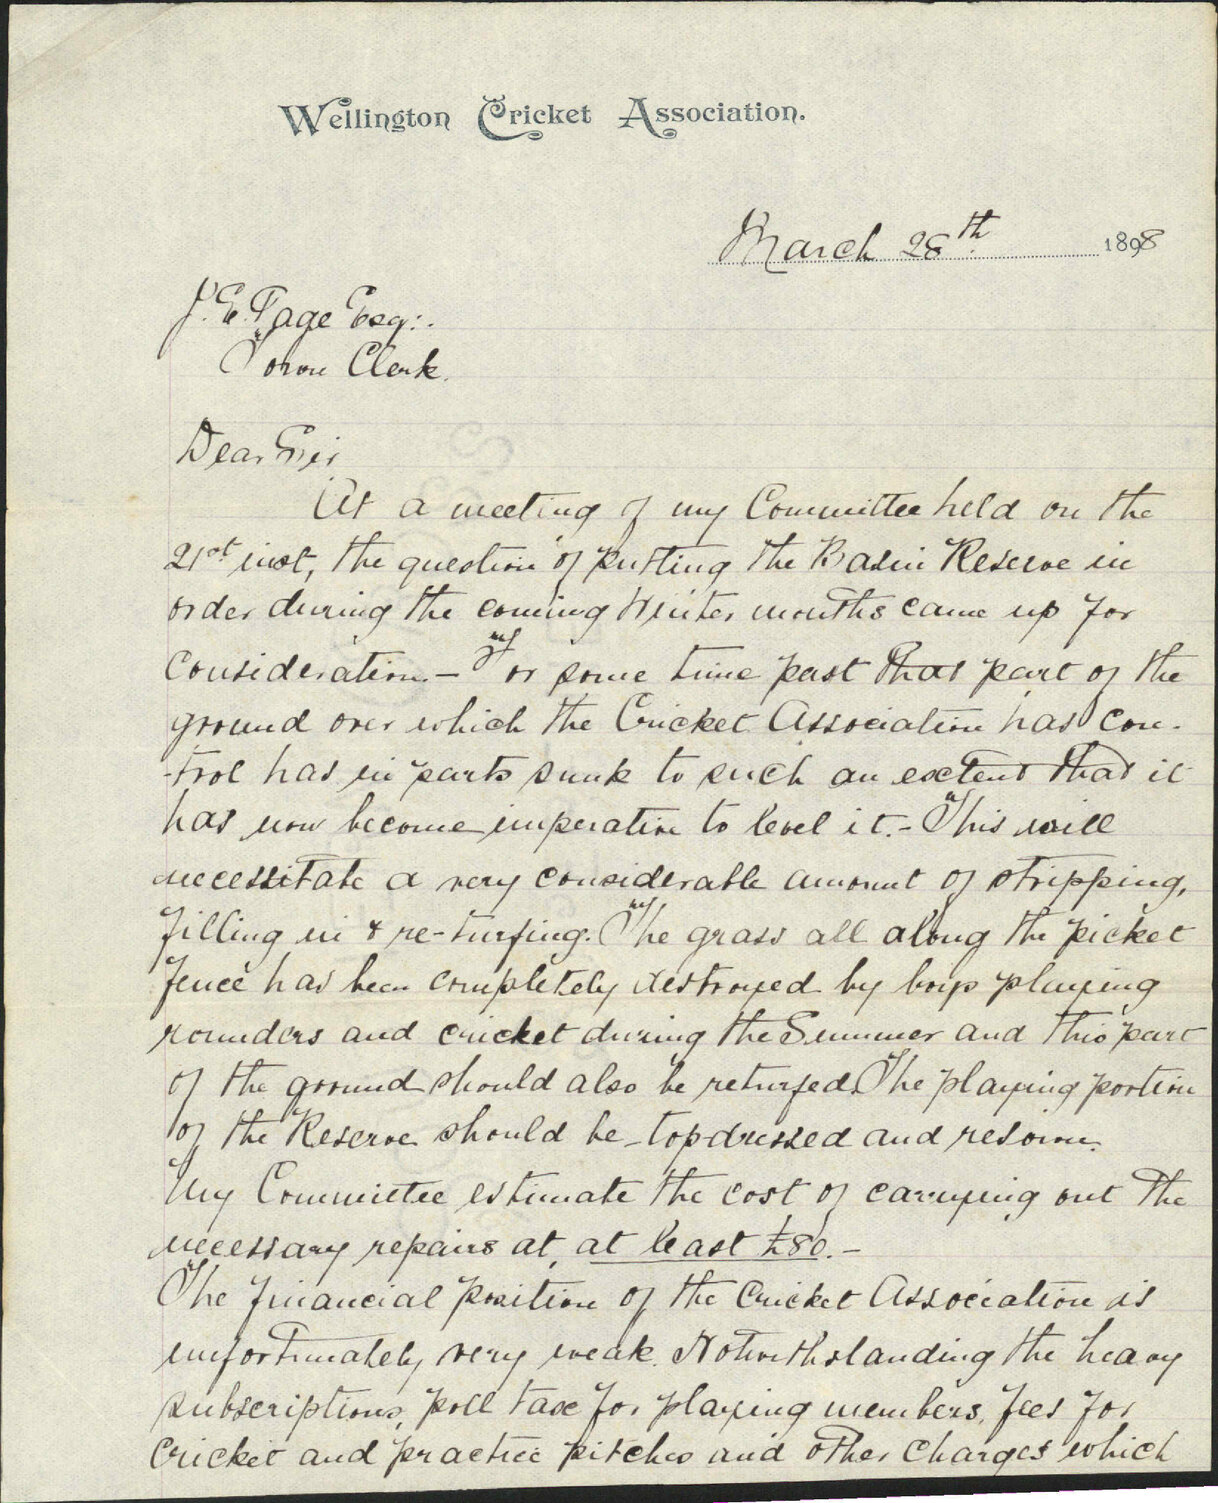 Wellington Cricket Association.
March 28th 1898
J. E. Page Esq:.
Town Clerk.
Dear Sir
At a meeting of my Committee held on the
21st inst, the question of putting the Basin Reserve in
order during the coming Winter months came up for
consideration. — For some time past that part of the
ground over which the Cricket Association has con-
-trol has in parts sunk to such an extent that it
has now become imperative to level it. — This will
necessitate a very considerable amount of stripping,
filling in & re-turfing. The grass all along the picket
fence has been completely destroyed by boys playing
rounders and cricket during the Summer and this part
of the ground should also be returfed. The playing portion
of the Reserve should be topdressed and resown.
My Committee estimate the cost of carrying out the
necessary repairs at, at least £80. —
The financial position of the Cricket Association is
unfortunately very weak. Notwithstanding the heavy
subscriptions, poll tax for playing members, fees for
cricket and practice pitches and other charges which